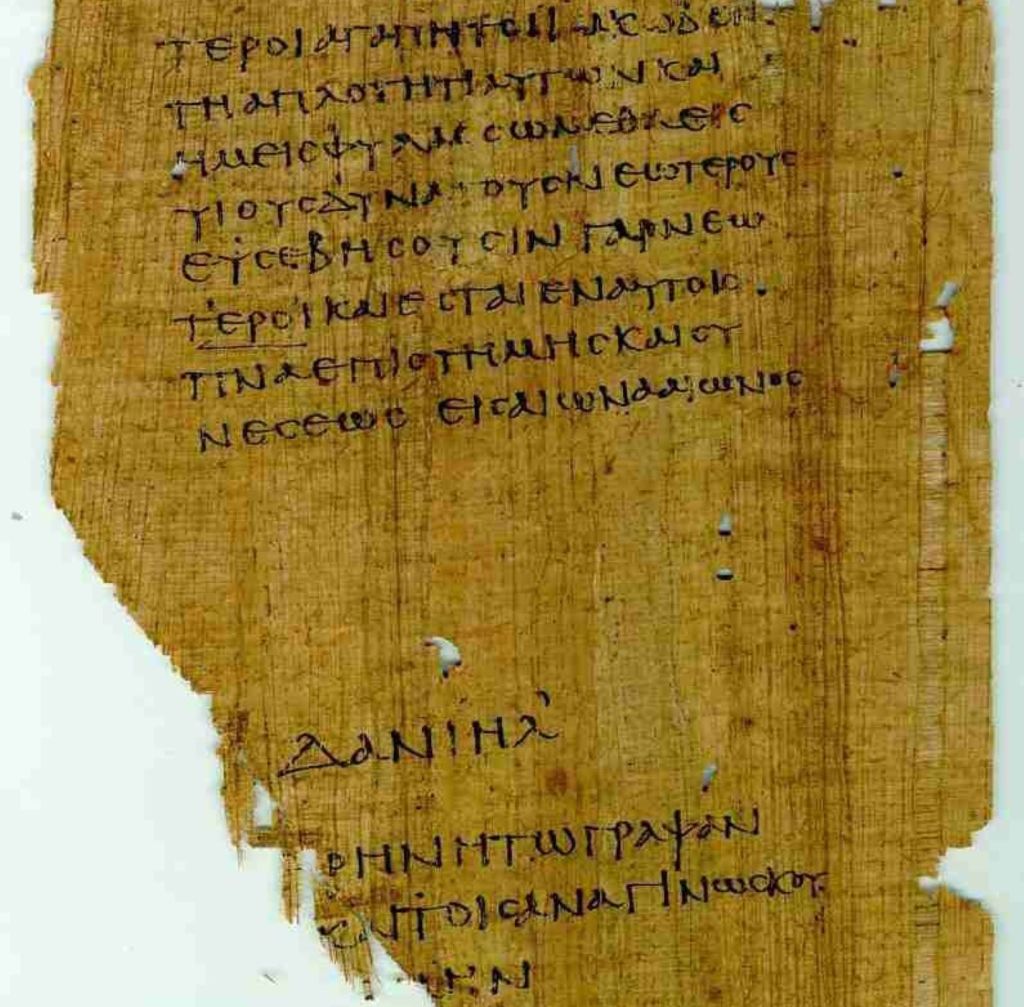 ΤΕΡΟΙΑΓΑΠΗΤΟΙΙΑΚΩΒΕΝ
ΤΗΑΠΛΟΤΗΤΙΑΥΤΩΝΚΑΙ
ΗΜΕΙϹΦΥΛΑϹϹΩΜΕΘΑΕΙϹ
ΥΙΟΥϹΔΥΝΑΤΟΥϹΝΕΩΤΕΡΟΥϹ
ΕΥϹΕΒΗϹΟΥϹΙΝΓΑΡΝΕΩ
ΤΕΡΟΙΚΑΙΕϹΤΑΙΕΝΑΥΤΟΙϹ·
ΠΝΑΕΠΙϹΤΗΜΗϹΚΑΙϹΥ
ΝΕϹΕΩϹ ΕΙϹΑΙΩΝΑΑΙΩΝΟϹ
ΔΑΝΙΗΛ
ΡΗΝΗΤΩΓΡΑΨΑΝ
ΚΑΙΤΟΙϹΑΝΑΓΙΝΩϹΚΟΥ
ΜΗΝ